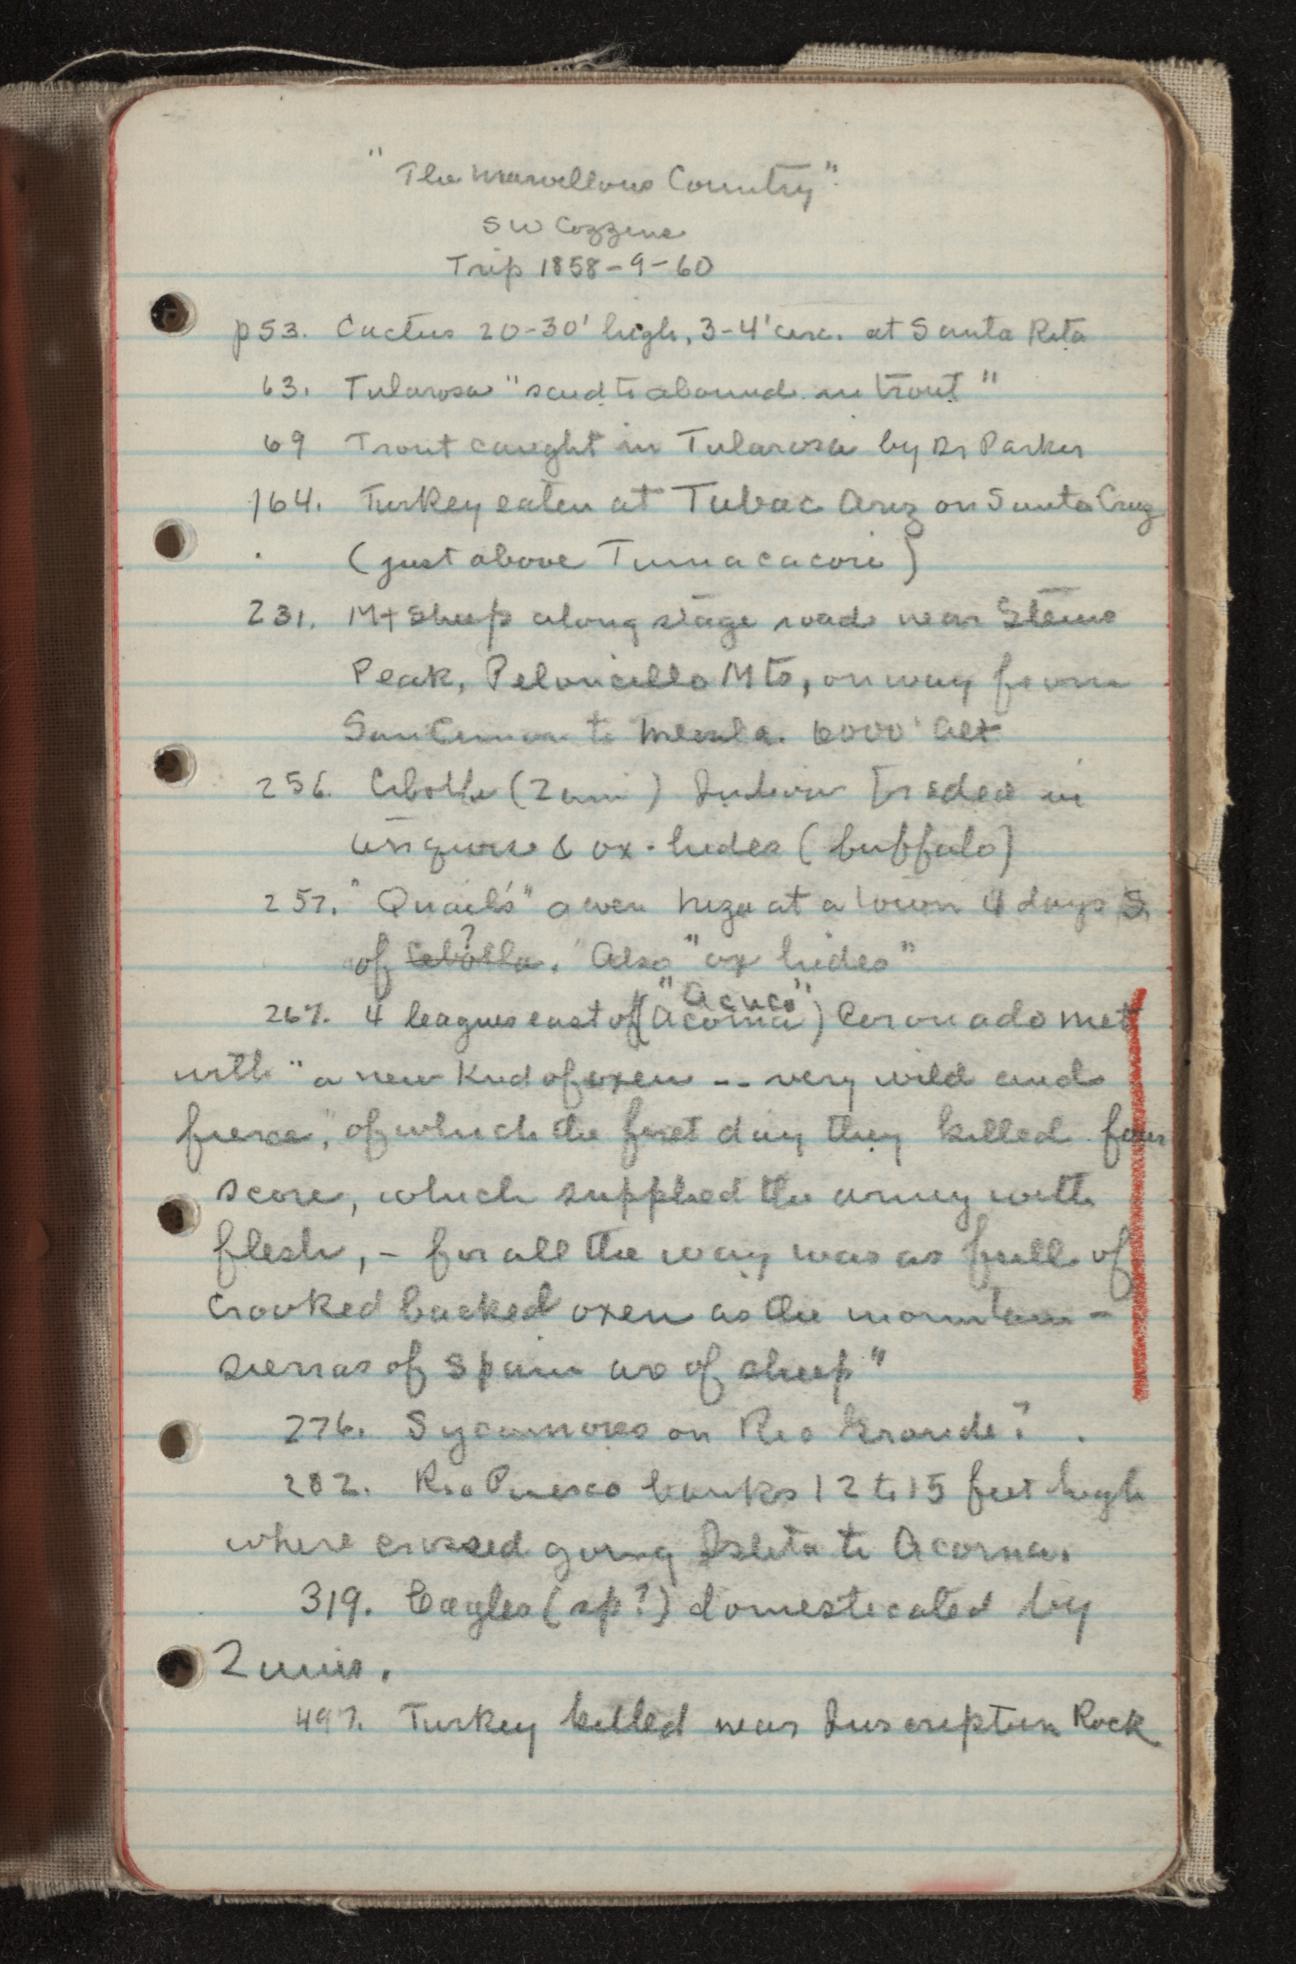 "The Marvellous Country"
S W Cozzens
Trip 1858-9-60
p53. Cactus 20-30' high, 3-4' circ. at Santa Rita
63. Tularosa "said to abound in trout"
69 Trout caught in Tularosa by Dr Parker
164. Turkey eaten at Tubac Ariz on Santa Cruz
(just above Tumacacori)
231. Mt Sheep along stage road near Steins
Peak, Peloncillo Mts, on way from
San Cimon to Mesilla. 6000' alt
256. Cibolla (Zuni) Indian traded in
turquoise & ox-hides (buffalo)
257. "Quails" given Niza at a town 4 days S
of Cibolla?. Also "ox hides"
267. 4 leagues east of ("Acuco" Acoma) Coronado met
with "a new kind of oxen -- very wild and
fierce," of which the first day they killed four
score, which supplied the army with
flesh, - for all the way was as full of
crooked backed oxen as the mountain-
sierras of Spain are of sheep"
276. Sycamores on Rio Grande?.
282. Rio Puerco banks 12 to 15 feet high
where crossed going Isleta to Acoma.
319. Eagles (sp?) domesticated by
Zunis.
497. Turkey killed near Inscription Rock